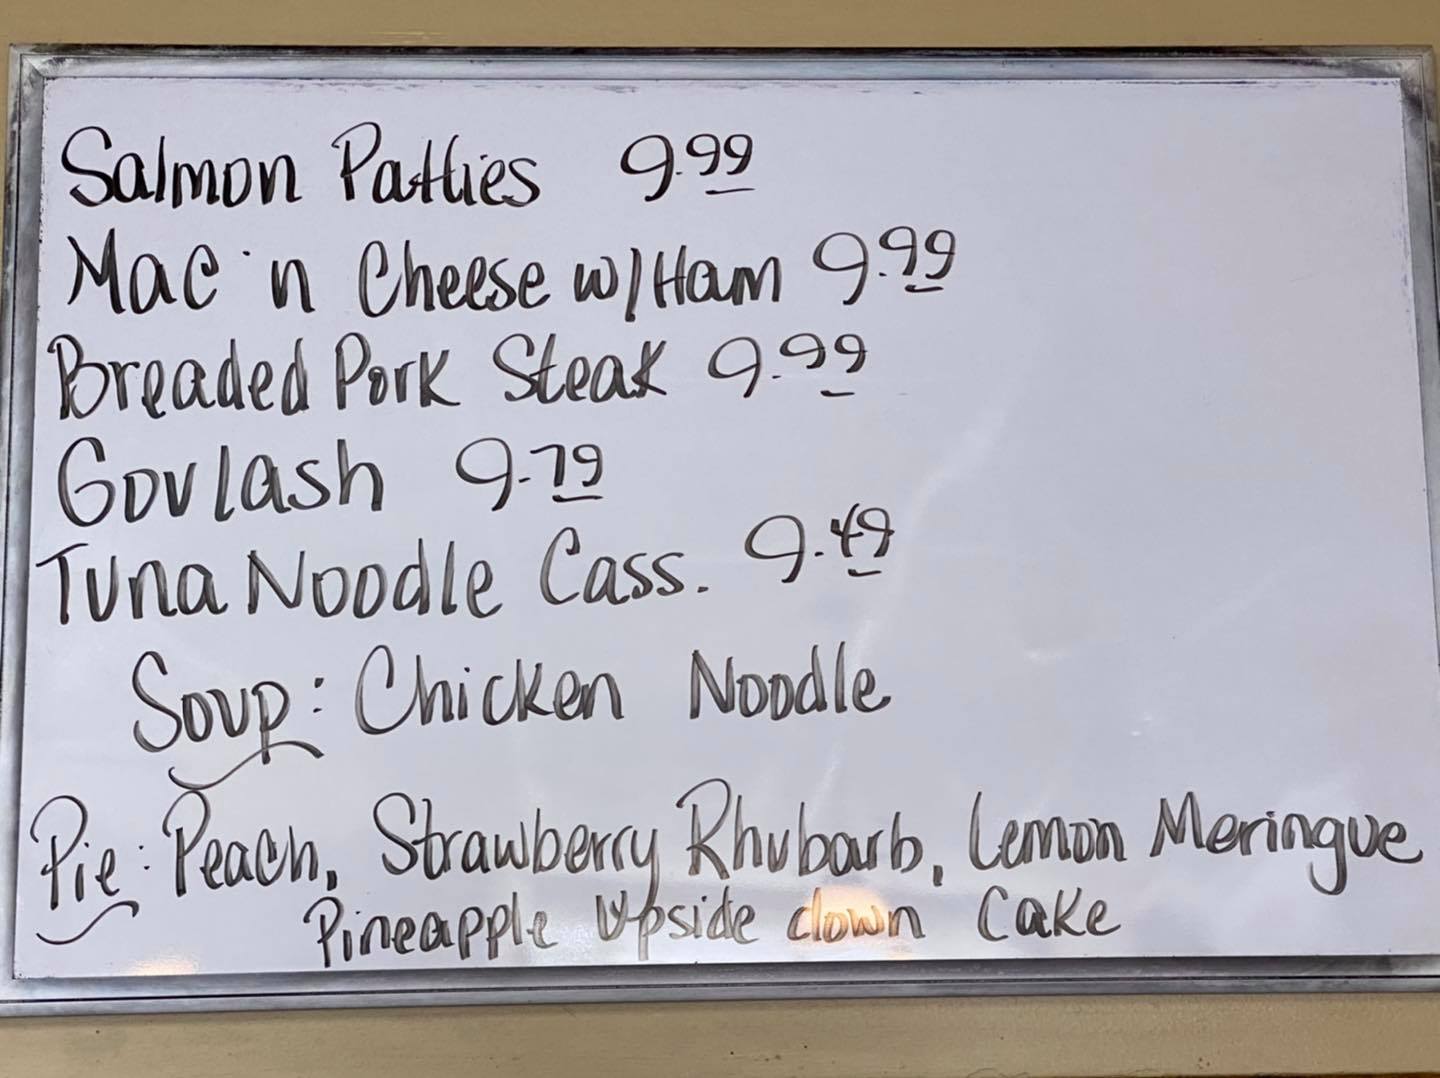 Salmon Patties 9.99
Mac 'n Cheese w/Ham 9.99
Breaded Pork Steak 9.99
Goulash 9.79
Tuna Noodle Cass. 9.49
Soup: Chicken Noodle
Pie: Peach, Strawberry Rhubarb, Lemon Meringue
Pineapple Upside down Cake